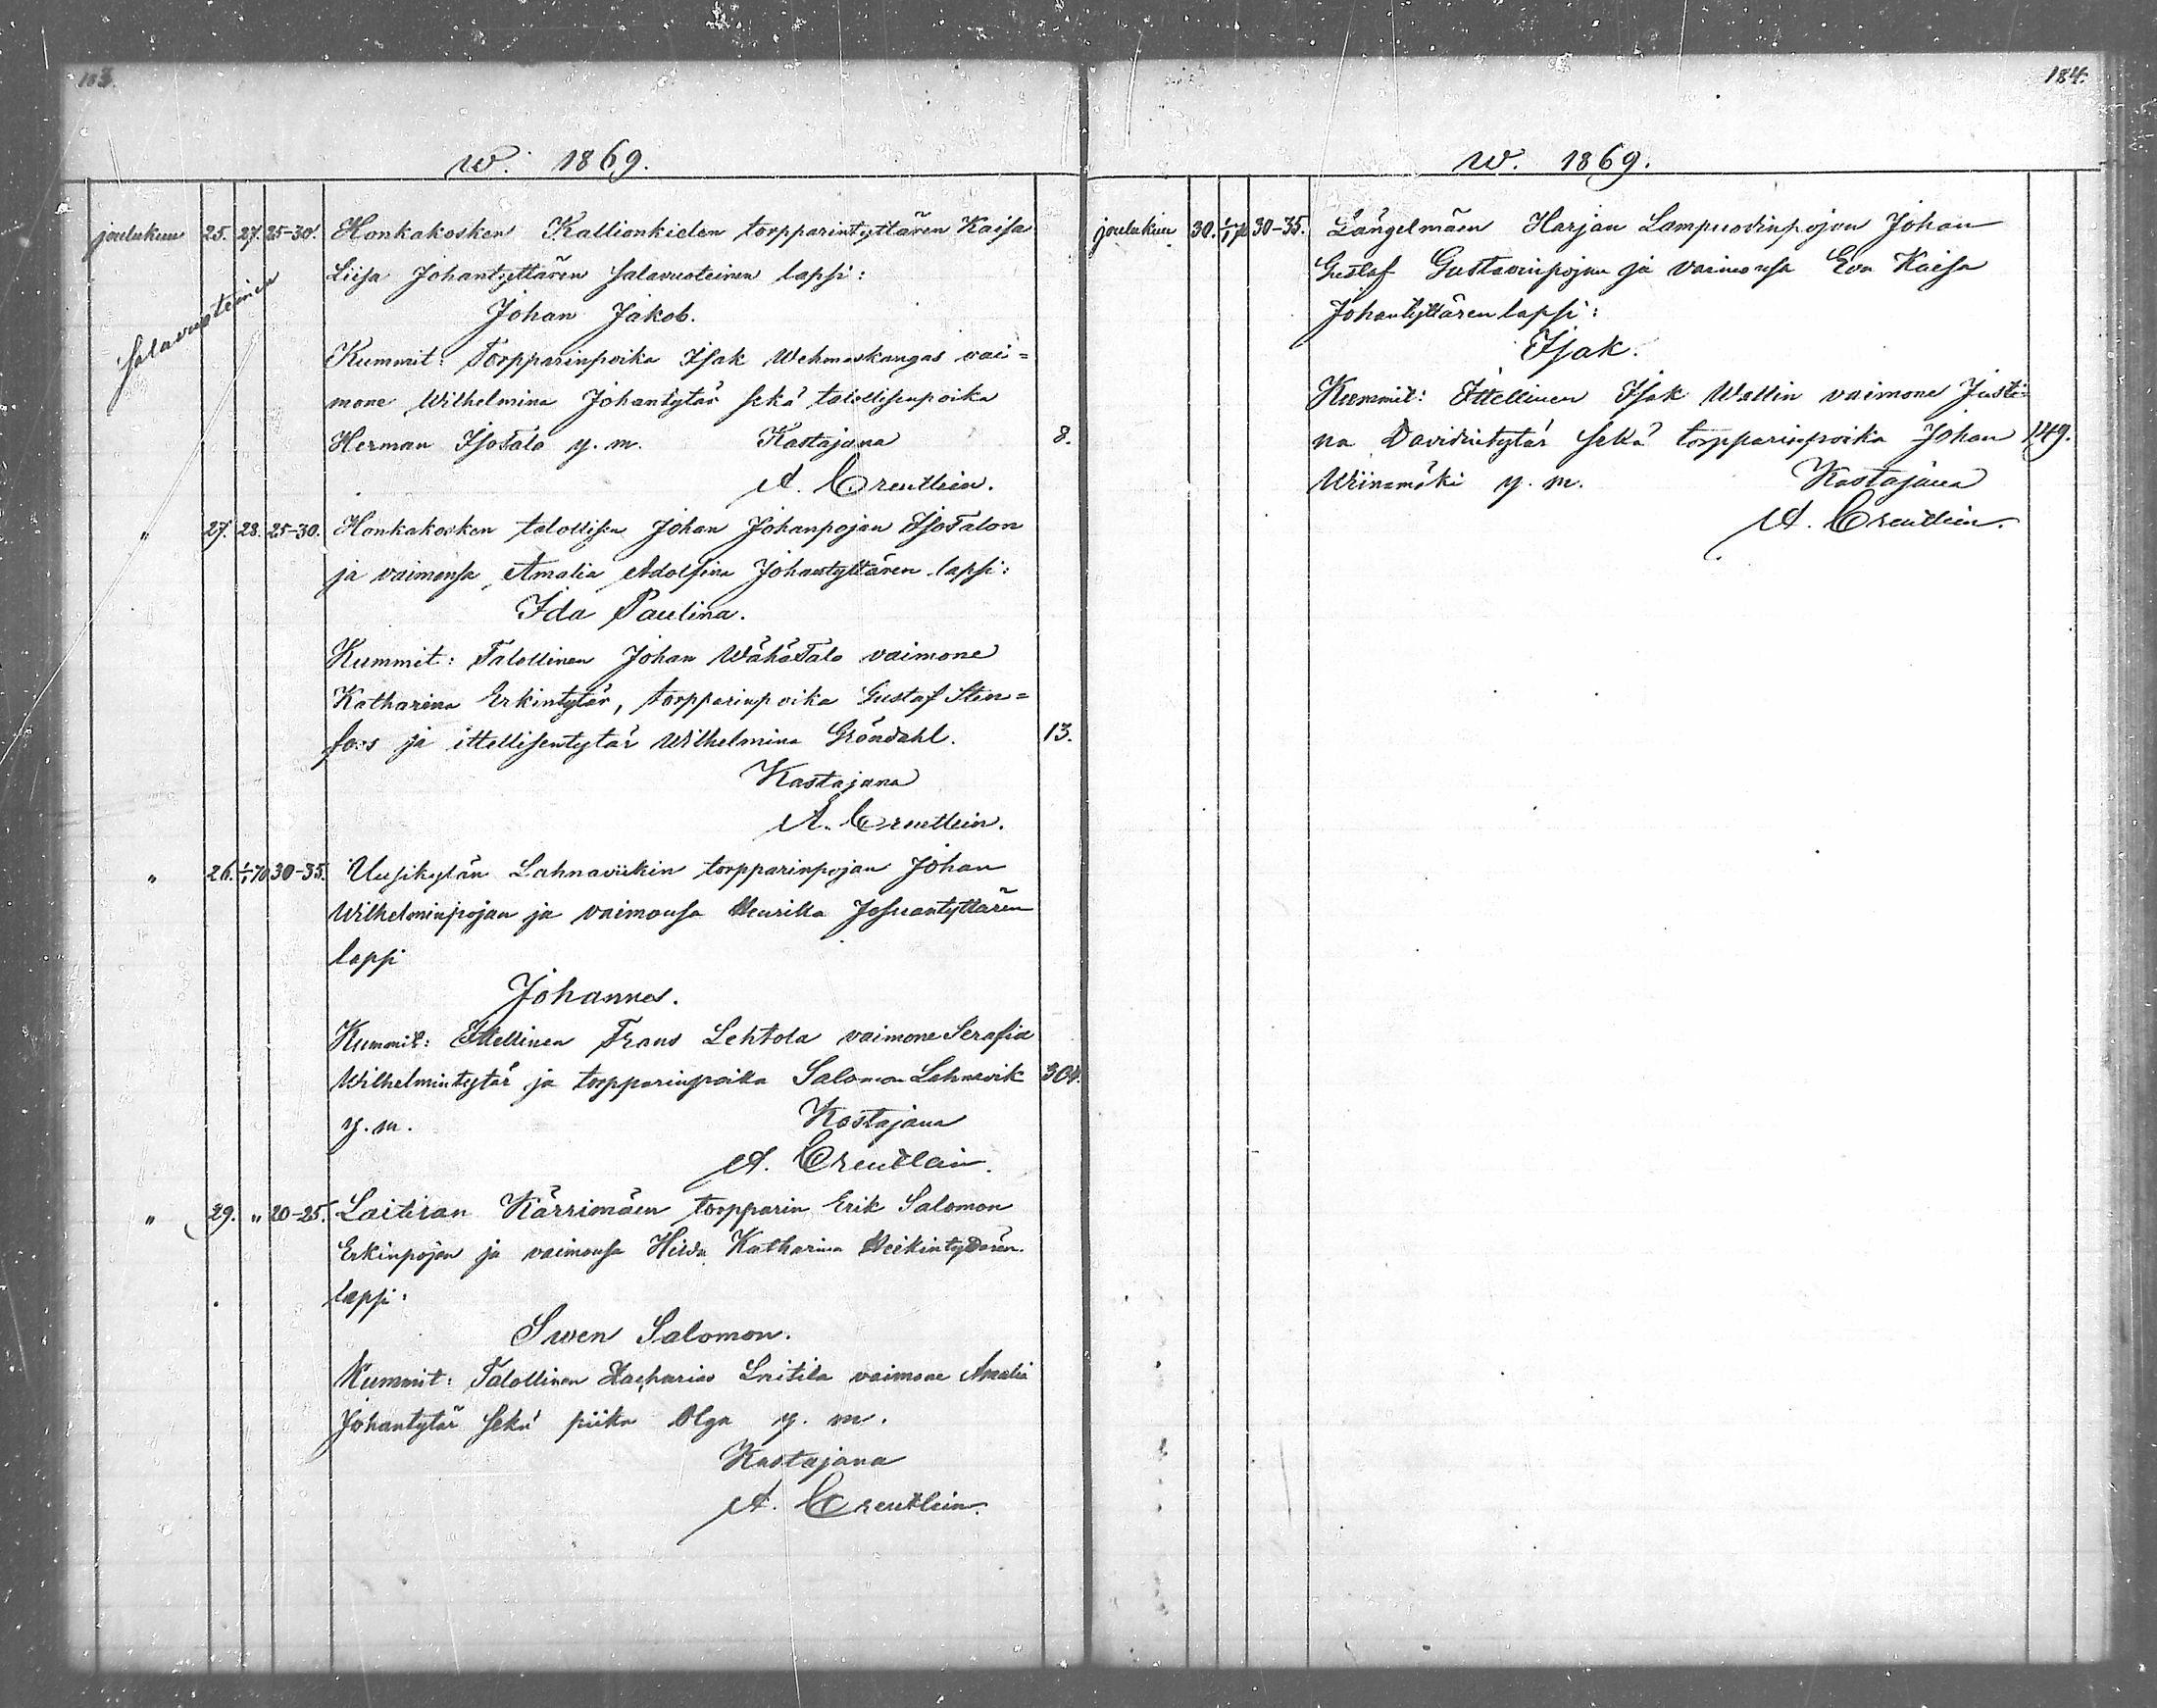 183.
w. 1869.
joulukuu 25. 27. 25-30. Honkakosken Kallionkielen torpparintyttären Kaisa
Liisa Johantyttären salavuoteinen lapsi:
Salavuoteinen
Johan Jakob.
Kummit: Torpparinpoika Isak Wehmaskangas vai=
mone Wilhelmina Johantytär sekä talollisenpoika
Herman IsoTalo y. m. Kastajana 8.
A. Creutlein.
" 27. 28. 25-30. Honkakosken talollisen Johan Johanpojan IsoTalon
ja vaimonsa Amalia Adolfina Johantyttären lapsi:
Ida Paulina.
Kummit: Talollinen Johan WähäTalo vaimone
Katharina Erkintytär, torpparinpoika Gustaf Sten=
fors ja ittellisentytär Wilhelmina Gröndahl. 13.
Kastajana
A. Creutlein.
" 26. 1/1 70 30-35. Uusikylän Lahnaviikin torpparinpojan Johan
Wilhelminpojan ja vaimonsa Henrika Josuantyttären
lapsi
Johannes.
Kummit: Ittellinen Frans Lehtola vaimone Serafia
Wilhelmintytär ja torpparinpoika Salomon Lahnavik 304.
y. m. Kastajana
A. Creutlein.
" 29. " 20-25. Laitilan Kärrimäen torpparin Erik Salomon
Erkinpojan ja vaimonsa Hilda Katharina Heikintyttären
lapsi:
Swen Salomon.
Kummit: Talollinen Zacharias Laitila vaimone Amalia
Johantytär sekä piika Olga y. m.
Kastajana
A. Creutlein.
184.
w. 1869.
joulukuu 30. 1/1 70 30-35. Längelmäen Harjan Lampuodinpojan Johan
Gustaf Gustavinpojan ja vaimonsa Eva Kaisa
Johantyttären lapsi:
Isak.
Kummit: Ittellinen Isak Wallin vaimone Justi=
na Davidintytär sekä torpparinpoika Johan 149.
Wiinamäki y. m. Kastajana
A. Creutlein.